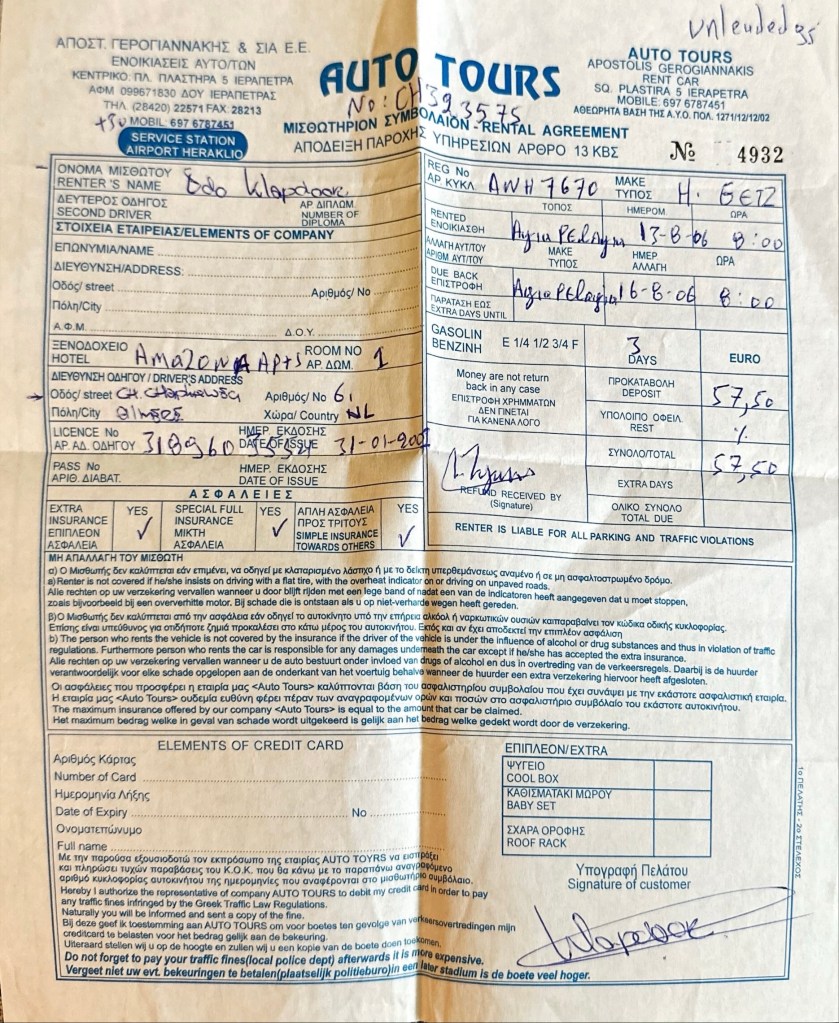 unleaded 95
ΑΠΟΣΤ. ΓΕΡΟΓΙΑΝΝΑΚΗΣ & ΣΙΑ Ε.Ε.
ΕΝΟΙΚΙΑΣΕΙΣ ΑΥΤΟ/ΤΩΝ
ΚΕΝΤΡΙΚΟ: ΠΛ. ΠΛΑΣΤΗΡΑ 5 ΙΕΡΑΠΕΤΡΑ
ΑΦΜ 099671830 ΔΟΥ ΙΕΡΑΠΕΤΡΑΣ
ΤΗΛ (28420) 22571 FAX. 28213
+30 MOBIL: 697 6787451
SERVICE STATION
AIRPORT HERAKLIO
AUTO TOURS
No: CH393575
ΜΙΣΘΩΤΗΡΙΟΝ ΣΥΜΒΟΛΑΙΟΝ - RENTAL AGREEMENT
ΑΠΟΔΕΙΞΗ ΠΑΡΟΧΗΣ ΥΠΗΡΕΣΙΩΝ ΑΡΘΡΟ 13 ΚΒΣ
AUTO TOURS
APOSTOLIS GEROGIANNAKIS
RENT CAR
SQ. PLASTIRA 5 IERAPETRA
MOBILE: 697 6787451
ΑΘΕΩΡΗΤΑ ΒΑΣΗ ΤΗΣ Α.Υ.Ο. ΠΟΛ. 1271/12/12/02
№ 4932
ΟΝΟΜΑ ΜΙΣΘΩΤΟΥ
RENTER'S NAME
ΔΕΥΤΕΡΟΣ ΟΔΗΓΟΣ ΑΡ ΔΙΠΛΩΜ.
SECOND DRIVER NUMBER OF DIPLOMA
ΣΤΟΙΧΕΙΑ ΕΤΑΙΡΕΙΑΣ/ELEMENTS OF COMPANY
ΕΠΩΝΥΜΙΑ/NAME:
ΔΙΕΥΘΥΝΣΗ/ADDRESS:
Οδός/ street Αριθμός/ No
Πόλη/City
Α.Φ.Μ. Δ.Ο.Υ.
ΞΕΝΟΔΟΧΕΙΟ ROOM NO
HOTEL AMAZON APTS ΑΡ. ΔΩΜ. 1
ΔΙΕΥΘΥΝΣΗ ΟΔΗΓΟΥ / DRIVER'S ADDRESS
Οδός/ street CH. Αριθμός/ Νο 61
Πόλη/City Χώρα/ Country NL
LICENCE No ΗΜΕΡ. ΕΚΔΟΣΗΣ
ΑΡ ΑΔ. ΟΔΗΓΟΥ DATE OF ISSUE 31-01-2001
PASS No ΗΜΕΡ. ΕΚΔΟΣΗΣ
ΑΡΙΘ. ΔΙΑΒΑΤ. DATE OF ISSUE
REG No
ΑΡ. ΚΥΚΛ. ΑΝΗ 7670 MAKE ΤΥΠΟΣ Η. ΓΕΤΖ
ΤΟΠΟΣ ΗΜΕΡΟΜ. ΩΡΑ
RENTED
ΕΝΟΙΚΙΑΣΘΗ Αγια Pelagia 13-8-06 8:00
ΑΛΛΑΓΗ ΑΥΤ/ΤΟΥ MAKE ΗΜΕΡ ΩΡΑ
ΑΡΙΘΜ ΑΥΤ/ΤΟΥ ΤΥΠΟΣ ΑΛΛΑΓΗ
DUE BACK
ΕΠΙΣΤΡΟΦΗ Αγια Pelagia 16-8-06 8:00
ΠΑΡΑΤΑΣΗ ΕΩΣ
EXTRA DAYS UNTIL
GASOLIN
ΒΕΝΖΙΝΗ E 1/4 1/2 3/4 F 3 DAYS EURO
Money are not return
back in any case
ΕΠΙΣΤΡΟΦΗ ΧΡΗΜΑΤΩΝ
ΔΕΝ ΓΙΝΕΤΑΙ
ΓΙΑ ΚΑΝΕΝΑ ΛΟΓΟ
ΠΡΟΚΑΤΑΒΟΛΗ
DEPOSIT 57,50
ΥΠΟΛΟΙΠΟ ΟΦΕΙΛ.
REST %
ΣΥΝΟΛΟ/TOTAL 57,50
EXTRA DAYS
REFUND RECEIVED BY
(Signature)
ΟΛΙΚΟ ΣΥΝΟΛΟ
TOTAL DUE
RENTER IS LIABLE FOR ALL PARKING AND TRAFFIC VIOLATIONS
ΑΣΦΑΛΕΙΕΣ
EXTRA INSURANCE ΕΠΙΠΛΕΟΝ ΑΣΦΑΛΕΙΑ YES ✓
SPECIAL FULL INSURANCE ΜΙΚΤΗ ΑΣΦΑΛΕΙΑ YES ✓
ΑΠΛΗ ΑΣΦΑΛΕΙΑ ΠΡΟΣ ΤΡΙΤΟΥΣ SIMPLE INSURANCE TOWARDS OTHERS YES ✓
ΜΗ ΑΠΑΛΛΑΓΗ ΤΟΥ ΜΙΣΘΩΤΗ
α) Ο Μισθωτής δεν καλύπτεται εάν επιμένει, να οδηγεί με κλαταρισμένο λάστιχο ή με το δείκτη υπερθεμάνσεως αναμένο ή σε μη ασφαλτοστρωμένο δρόμο.
a) Renter is not covered if he/she insists on driving with a flat tire, with the overheat indicator on or driving on unpaved roads.
Alle rechten op uw verzekering vervallen wanneer u door blijft rijden met een lege band of nadat een van de indicatoren heeft aangegeven dat u moet stoppen,
zoals bijvoorbeeld bij een oververhitte motor. Bij schade die is ontstaan als u op niet-verharde wegen heeft gereden.
β) Ο Μισθωτής δεν καλύπτεται από την ασφάλεια εάν οδηγεί το αυτοκίνητο υπό την επήρεια αλκοόλ ή ναρκωτικών ουσιών και παραβαίνει τον κώδικα οδικής κυκλοφορίας.
Επίσης είναι υπεύθυνος για οποιαδήποτε ζημιά προκαλέσει στο κάτω μέρος του αυτοκινήτου. Εκτός και αν έχει αποδεκτεί την επιπλέον ασφάλιση
b) The person who rents the vehicle is not covered by the insurance if the driver of the vehicle is under the influence of alcohol or drug substances and thus in violation of traffic
regulations. Furthermore person who rents the car is responsible for any damages underneath the car except if he/she has accepted the extra insurance.
Alle rechten op uw verzekering vervallen wanneer u de auto bestuurt onder invloed van drugs of alcohol en dus in overtreding van de verkeersregels. Daarbij is de huurder
verantwoordelijk voor elke schade opgelopen aan de onderkant van het voertuig behalve wanneer de huurder een extra verzekering hiervoor heeft afgesloten.
Οι ασφάλειες που προσφέρει η εταιρία μας <Auto Tours> καλύπτονται βάση του ασφαλιστηρίου συμβολαίου που έχει συνάψει με την εκάστοτε ασφαλιστική εταιρία.
Η εταιρία μας <Auto Tours> ουδεμία ευθύνη φέρει πέραν των αναγραφομένων ορών και ποσών στο ασφαλιστήριο συμβόλαιο του εκάστοτε αυτοκινήτου.
The maximum insurance offered by our company <Auto Tours> is equal to the amount that car be claimed.
Het maximum bedrag welke in geval van schade wordt uitgekeerd is gelijk aan het bedrag welke gedekt wordt door de verzekering.
ELEMENTS OF CREDIT CARD
Αριθμός Κάρτας
Number of Card
Ημερομηνία Λήξης
Date of Expiry No
Ονοματεπώνυμο
Full name
ΕΠΙΠΛΕΟΝ/EXTRA
ΨΥΓΕΙΟ
COOL BOX
ΚΑΘΙΣΜΑΤΑΚΙ ΜΩΡΟΥ
BABY SET
ΣΧΑΡΑ ΟΡΟΦΗΣ
ROOF RACK
Με την παρούσα εξουσιοδοτώ τον εκπρόσωπο της εταιρίας AUTO TOYRS να εισπράξει
και πληρώσει τυχών παραβάσεις του Κ.Ο.Κ. που θα κάνω με το παραπάνω αναγραφόμενο
αριθμό κυκλοφορίας αυτοκινήτου της ημερομηνίες που αναφέρονται στο μισθωτήριο συμβόλαιο.
Hereby I authorize the representative of company AUTO TOURS to debit my credit card in order to pay
any traffic fines infringed by the Greek Traffic Law Regulations.
Naturally you will be informed and sent a copy of the fine.
Bij deze geef ik toestemming aan AUTO TOURS om voor boetes ten gevolge van verkeersovertredingen mijn
creditcard te belasten voor het bedrag gelijk aan de bekeuring.
Uiteraard stellen wij u op de hoogte en zullen wij u een kopie van de boete doen toekomen.
Do not forget to pay your traffic fines(local police dept) afterwards it is more expensive.
Vergeet niet uw evt. bekeuringen te betalen(plaatselijk politieburo)in een later stadium is de boete veel hoger.
Υπογραφή Πελάτου
Signature of customer
1ο ΠΕΛΑΤΗΣ - 2ο ΣΤΕΛΕΧΟΣ